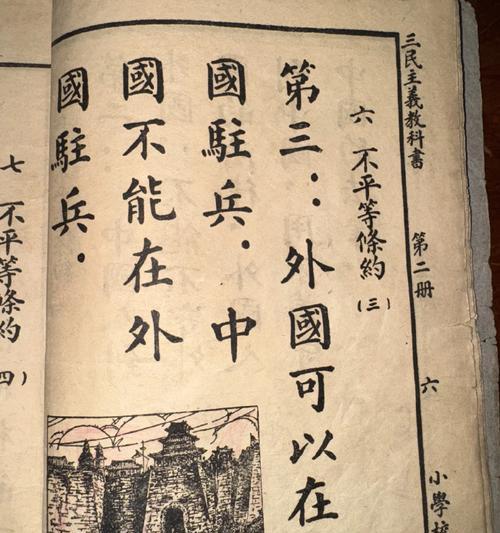 三民主義教科書 第二冊 六 小學校
六 不平等條約（三）
第三：外國可以在
國駐兵．中
國不能在外
國駐兵．
七 不平等條約（四）